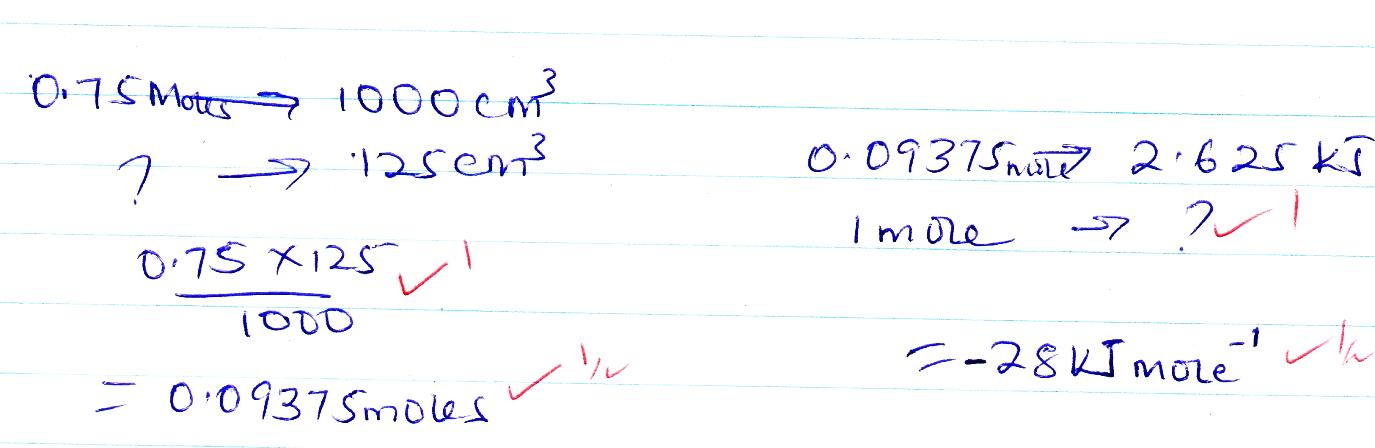 0.75 Moles → 1000 cm³
? → 125 cm³
0.75 × 125 ✓ 1
1000
= 0.09375 moles ✓ ½
0.09375 mole → 2.625 kJ
1 mole → ? ✓ 1
= -28 kJ mole⁻¹ ✓ ½